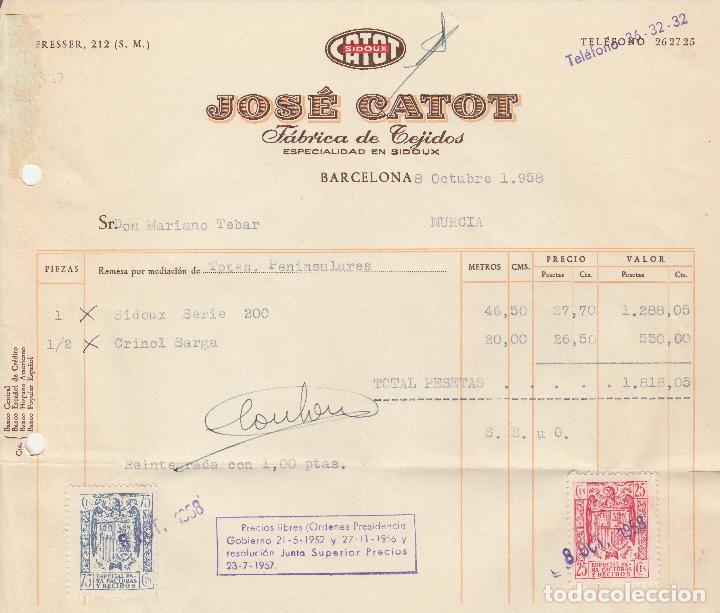 FRESSER, 212 (S. M.)
CATOT
SIDOUX
TELÉFONO 262725
Teléfono 36-32-32
JOSÉ CATOT
Fábrica de Tejidos
ESPECIALIDAD EN SIDOUX
BARCELONA 8 Octubre 1.958
Sr. Don Mariano Tebar MURCIA
PIEZAS Remesa por mediación de Tptes. Peninsulares METROS CMS. PRECIO VALOR
Pesetas Cts. Pesetas Cts.
1 X Sidoux Serie 200 46,50 27,70 1.288,05
1/2 X Crinol Sarga 20,00 26,50 530,00
TOTAL PESETAS . . . . 1.818,05
Cta. Banco Central
Banco Español de Crédito
Banco Hispano Americano
Banco Popular Español
S. E. u O.
Reintegrada con 1,00 ptas.
75 Cts
8 OCT. 1958
75 Cts
ESPECIAL PA-
RA FACTURAS
Y RECIBOS
Precios libres (Ordenes Presidencia
Gobierno 21-5-1952 y 27-11-1956 y
resolución Junta Superior Precios
23-7-1957.
Cts 25
8 OCT. 1958
25 Cts
ESPECIAL PA-
RA FACTURAS
Y RECIBOS
todocoleccion